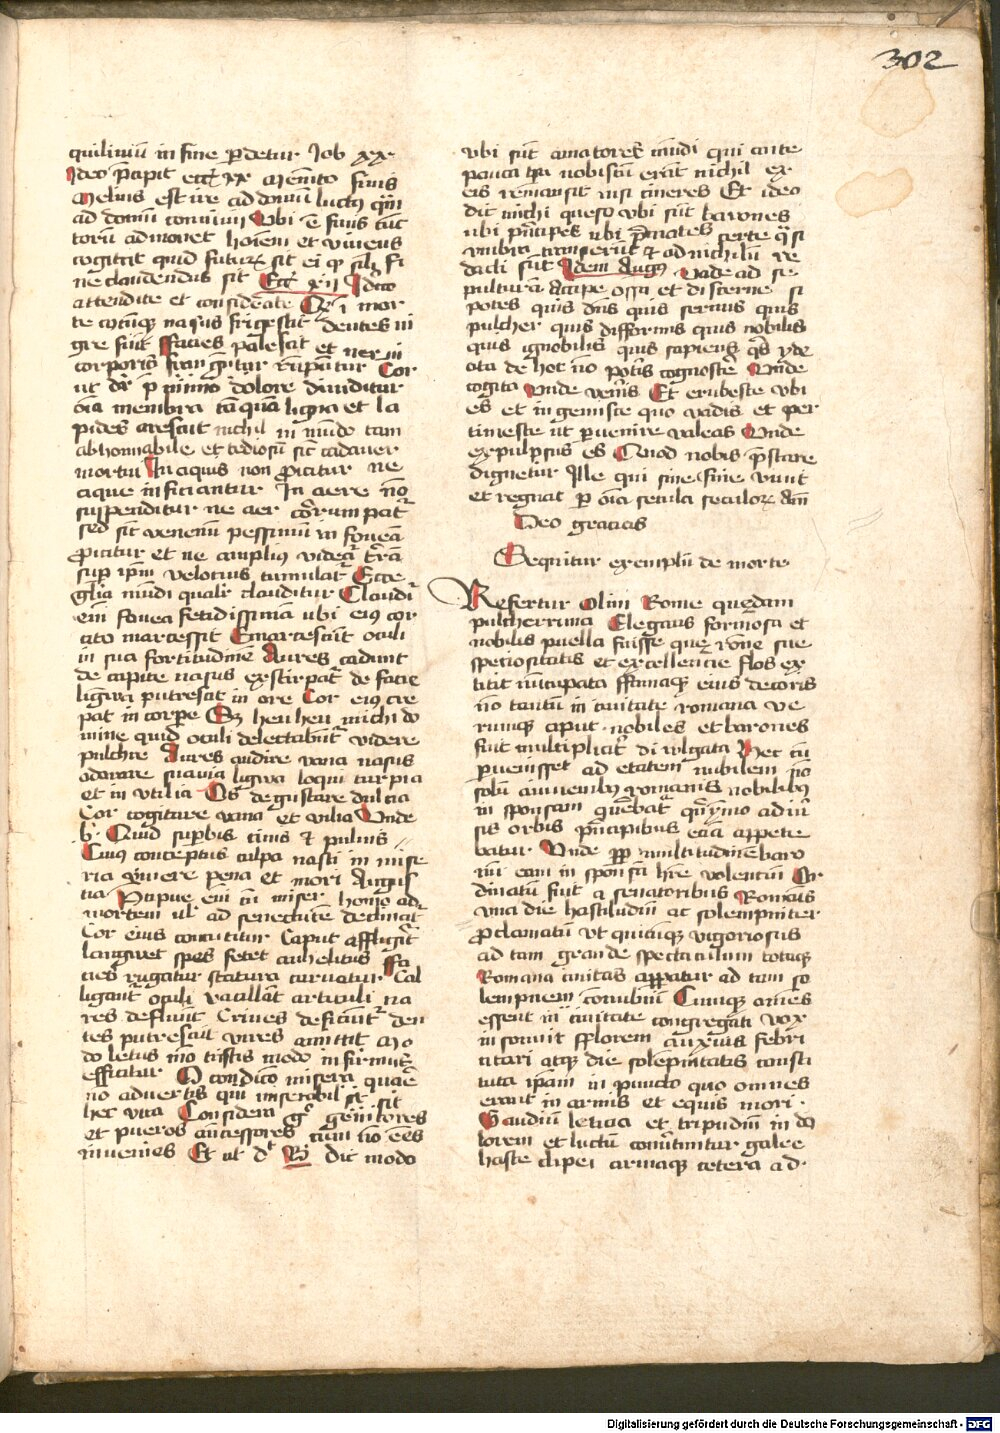 302
quilinū in fine ꝑdetur Job xx
Ideo p̄cipit eccͥ xx Memēto finis
Melius est ire ad domū luctus qͣm
ad domū conuiuij Vbi ē finis cūc
torū admonet hoīem et viuens
cogitat quid futurꝝ sit ei
ne claudendus sit Eccͥ xij Ideo
attendite et considerate
te nasus frigescit dentes ni
gre fiūt ffacies palescit et nerui
corporis frangūtur rūpūtur Cor
dolore diuiditur
oīa membra tāquā ligna et la
pides arescūt nichil in mūdo tam
abhominabile et tediosū sic̄ cadauer
mortui In aquis non ꝓicitur ne
aque inficiantur In aere nō
suspenditur ne aer corrumpatͬ
sed sic̄ venenū pessimū in foueā
ꝓicitur et ne amplius videatͬ tͬrā
suꝑ ip̄m velotius tumulatͬ Ecce
gl̄ia mūdi qualiͬ clauditur Claudi
em̄ fouea fetidissimā ubi eius cor
marcessit Emarcescūt oculi
in sua fortitudinē Aures cadunt
de capite nasus exstirpatͬ de facie
ligwa putrescit in ore Cor eius cre
pat in corpore Sꝫ heu heu michi do
mine quid oculi delectabūtͬ videre
pulchre Aures audire vana nasus
odorare suauia ligwa loqui turpia
et in vtilia Os degustare dulcia
Cor cogitare vana et vilia Vnde
b. Quid suꝑbis cinis et puluis
Cuius conceptus culpa nasci in mise
ria viuere pena et mori Augus
tū Precipue em̄ cū miser homo ad
mortem ul̓ ad senectutē declinatͬ
Cor eius concutitur Caput affligitͬ
langwet spūs fetet anhelitus ffa
cies rugatur statura curuatur Cal
ligantͬ oculi vacillāt articuli na
res defluūt Crines deficiūtͬ den
tes putrescūt vires amittit Mo
do letus mō tristis modo infirmus
efficitur O condicō misera quare
nō aduertis qui miserabilͥ sit
hec vita Considera gͦ genitores
et pueros ancessores
inuenies Et ul̓ dͭ B̓ Dic modo
vbi sūt amatores mūdi qui ante
pauca tꝑa nobiscū erāt nichil ex
eis remansit nisi cineres Et ideo
dic michi queso vbi sūt barones
ubi pͥncipes ubi p̄mates certe qͣsi
vmbra transierūt et ad nichilū re
dacti sūt Idem Augus Vade ad se
pulturā Accipe ossa et discerne si
potes quis dn̄s quis seruus quis
pulcher quis difformis quis nobilis
quis ignobilis quis sapiens qͥs yde
ota de hoc nō potͥs cognoscē Vnde
cogita vnde venͥs Et erubesce vbi
es et in gemisce quo vadis et per
timesce ut ꝑuenire valeas Vnde
expulsus es Quod nobis p̄stare
dignetur Ille qui sine fine viuit
et regnat ꝑ oīa secula seculoꝝ Am̄
Deo gracias
Sequitur exemplū de morte
Refertur Olim Rome quedam
pulcherrima Elegans formosa et
nobilis puella fuisse que rōne sue
speciositatis et excellencie flos ex
titit nūcupata ffamaqꝫ eius decoris
nō tantū in ciuitate romana ve
rumqꝫ caput nobiles et barones
fuit multiplicitͬ di wlgata Hec cū
ꝑuenisset ad etatem nubilem nō
solū a iuuenibꝫ romanis nobilibꝫ
in sponsam querebatͬ qͣ ymo ad iū
sis orbis pͥncipibus eciā appete
batur Vnde ꝓp̄ multitudinē baro
nū eam in sponsā hr̄e volenciū Or
dinatū fuit a senatoribus Romanis
vna die hastiludiū ac solempniter
ꝓclamatū Vt quicūqꝫ vigoriosus
ad tam grande spectaculum totaqꝫ
Romana ciuitas apparatur ad tam so
lempnem conubiū Cumqꝫ omnes
essent in ciuitate congregati vox
in sonuit fflorem anxius febri
citari atqꝫ die solempnitatis consti
tuta ip̄am in puncto quo omnes
erant in armis et equis mori.
Gaudiū leticia et tripudiū in do
lorem et luctū conuͥtuntur galee
haste clipei armaqꝫ cetera ad.
Digitalisierung gefördert durch die Deutsche Forschungsgemeinschaft - DFG